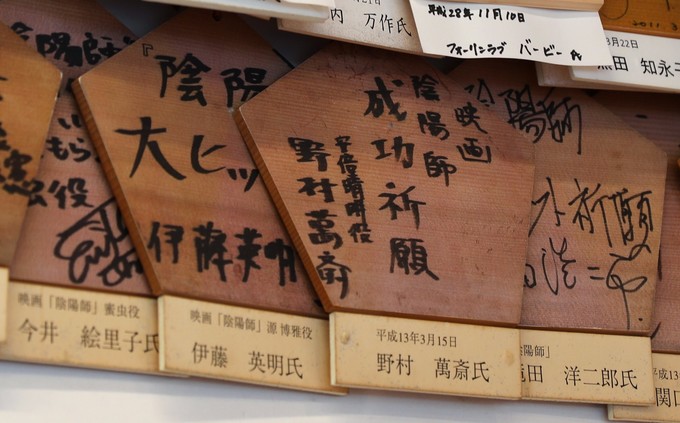 内 万作氏
平成28年11月10日
フォーリンラブ バービー 氏
3月22日
田 知永子
陰陽師
役
映画「陰陽師」蜜虫役
今井 絵里子氏
『陰陽
大ヒッ
伊藤英明
映画「陰陽師」源 博雅役
伊藤 英明氏
映画
陰陽師
成功祈願
安倍晴明役
野村萬斎
平成13年3月15日
野村 萬斎氏
陽師
祈願
洋二郎
陰陽師」
滝田 洋二郎氏
平成13
関口